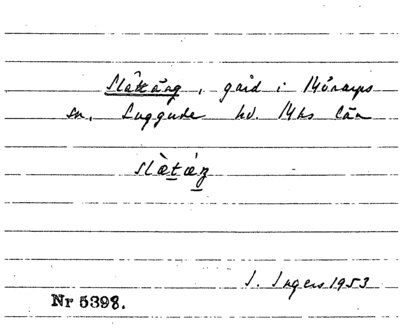 Slättäng, gård i Mörarps
sn, Luggude hd. Mhs län
slæ̀tǽŋ
I. Ingers 1953
Nr 5398.